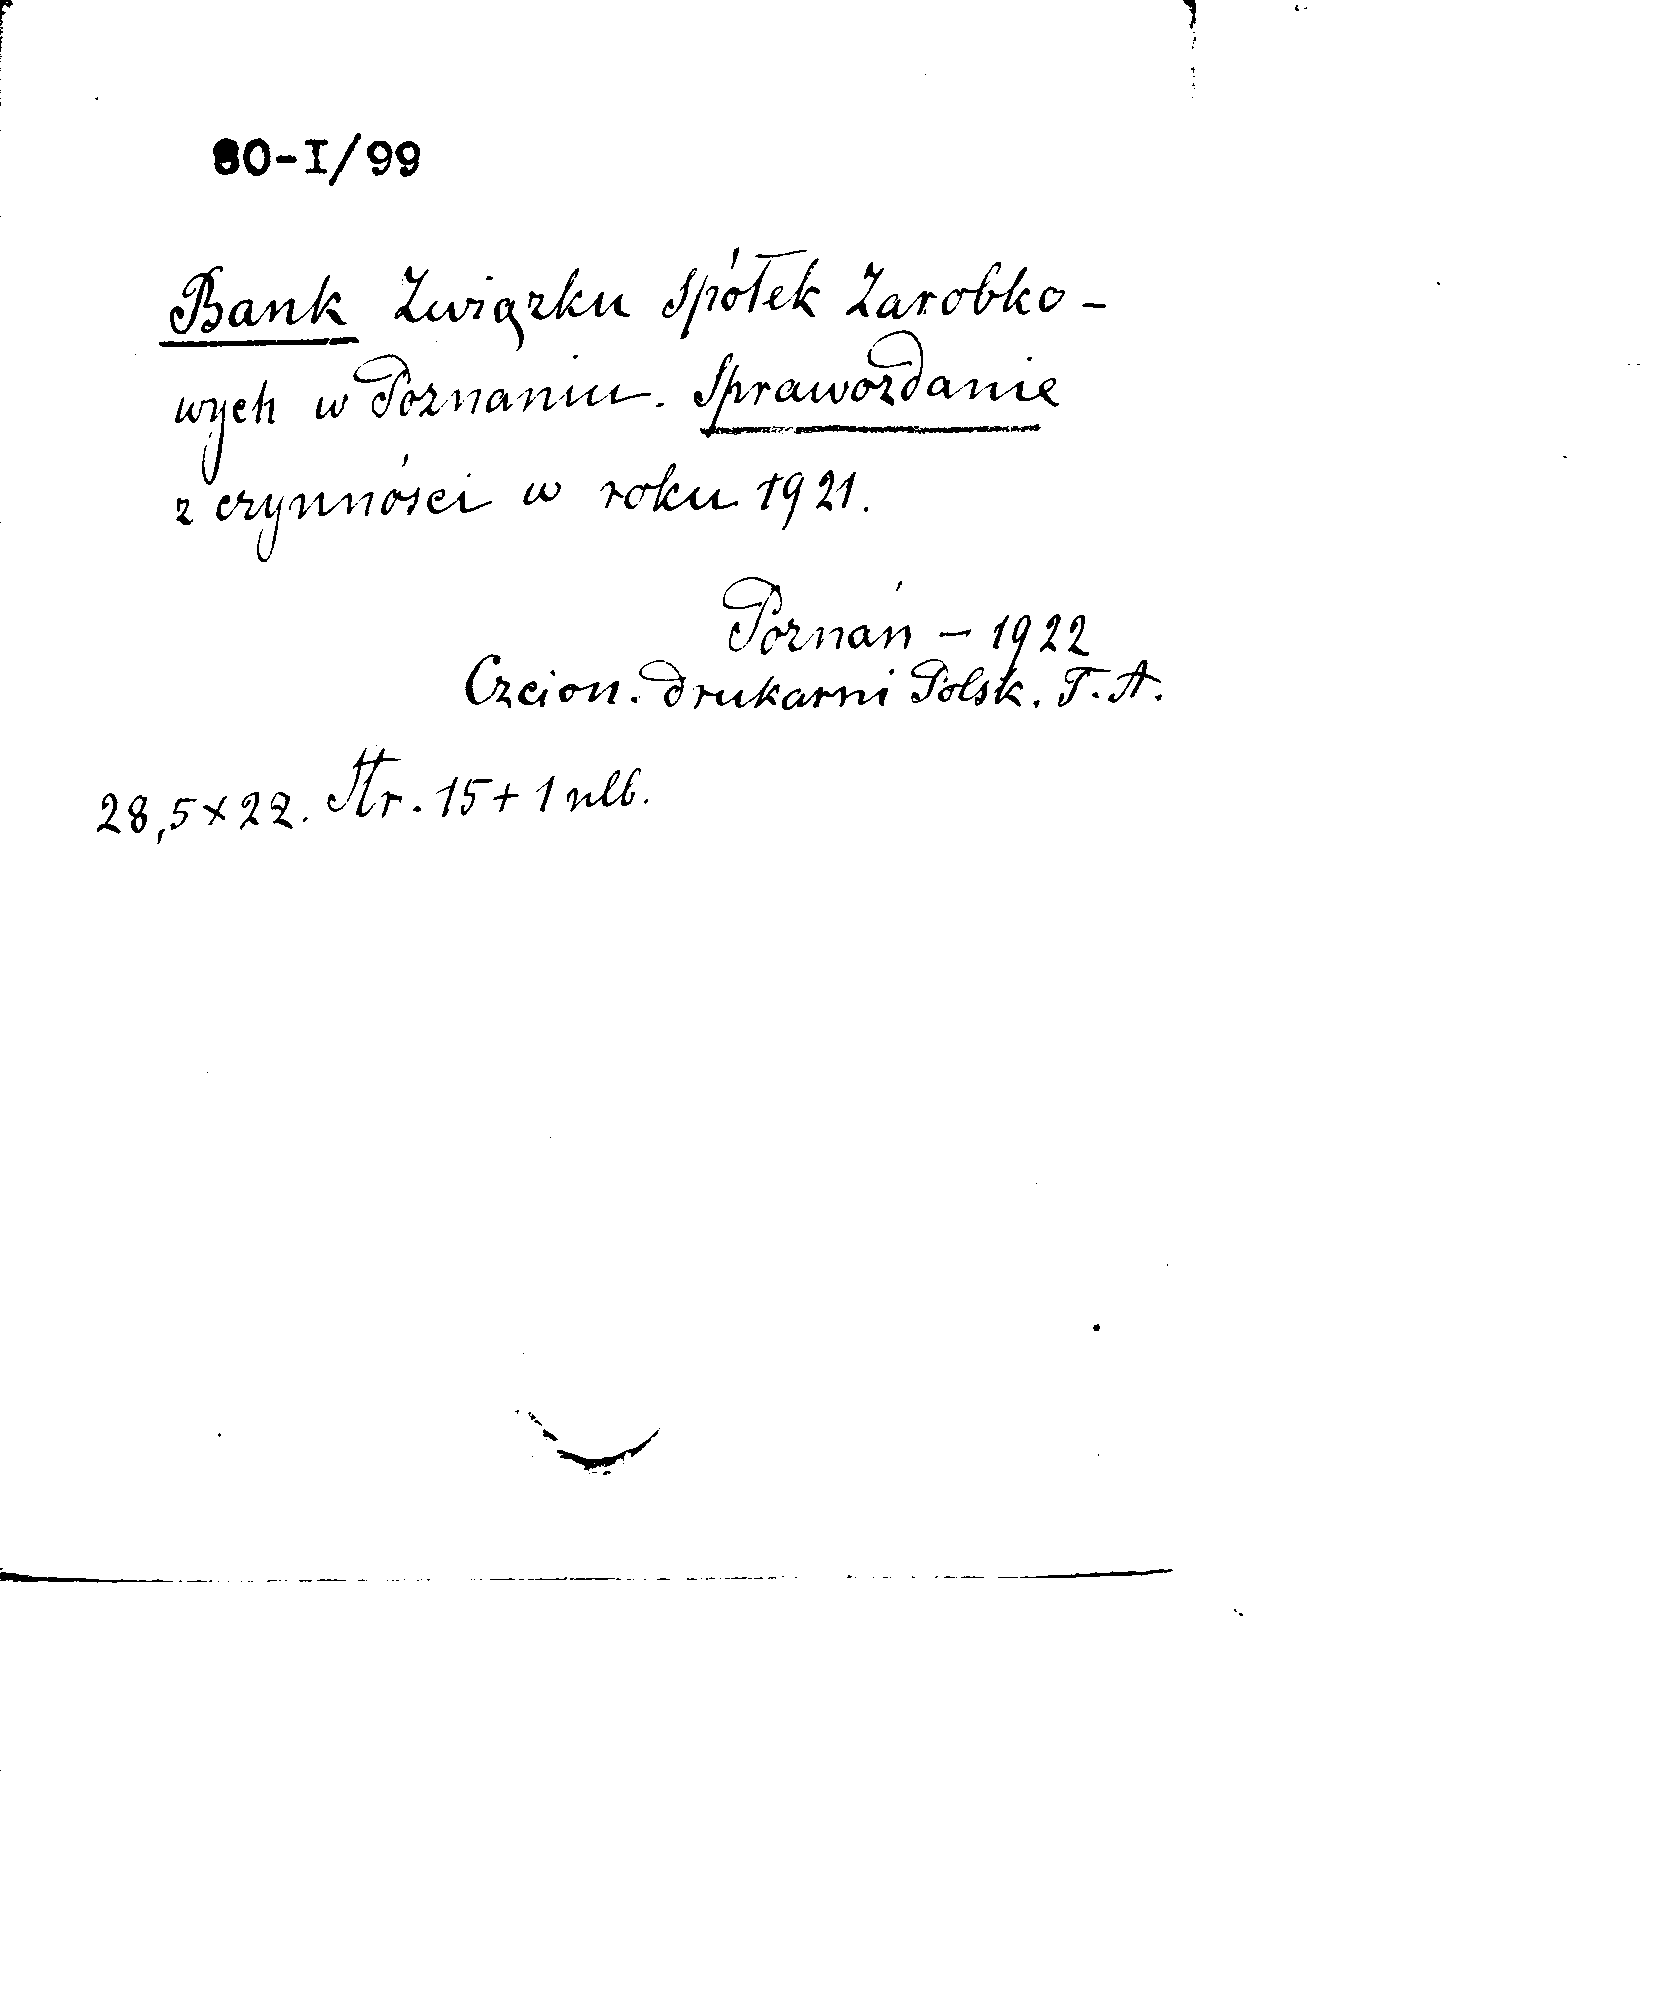 80-I/99
Bank Związku Spółek Zarobko-
wych w Poznaniu. Sprawozdanie
z czynności w roku 1921.
Poznań - 1922
Czcion. Drukarni Polsk. T. A.
28,5×22. Str. 15+1 nlb.